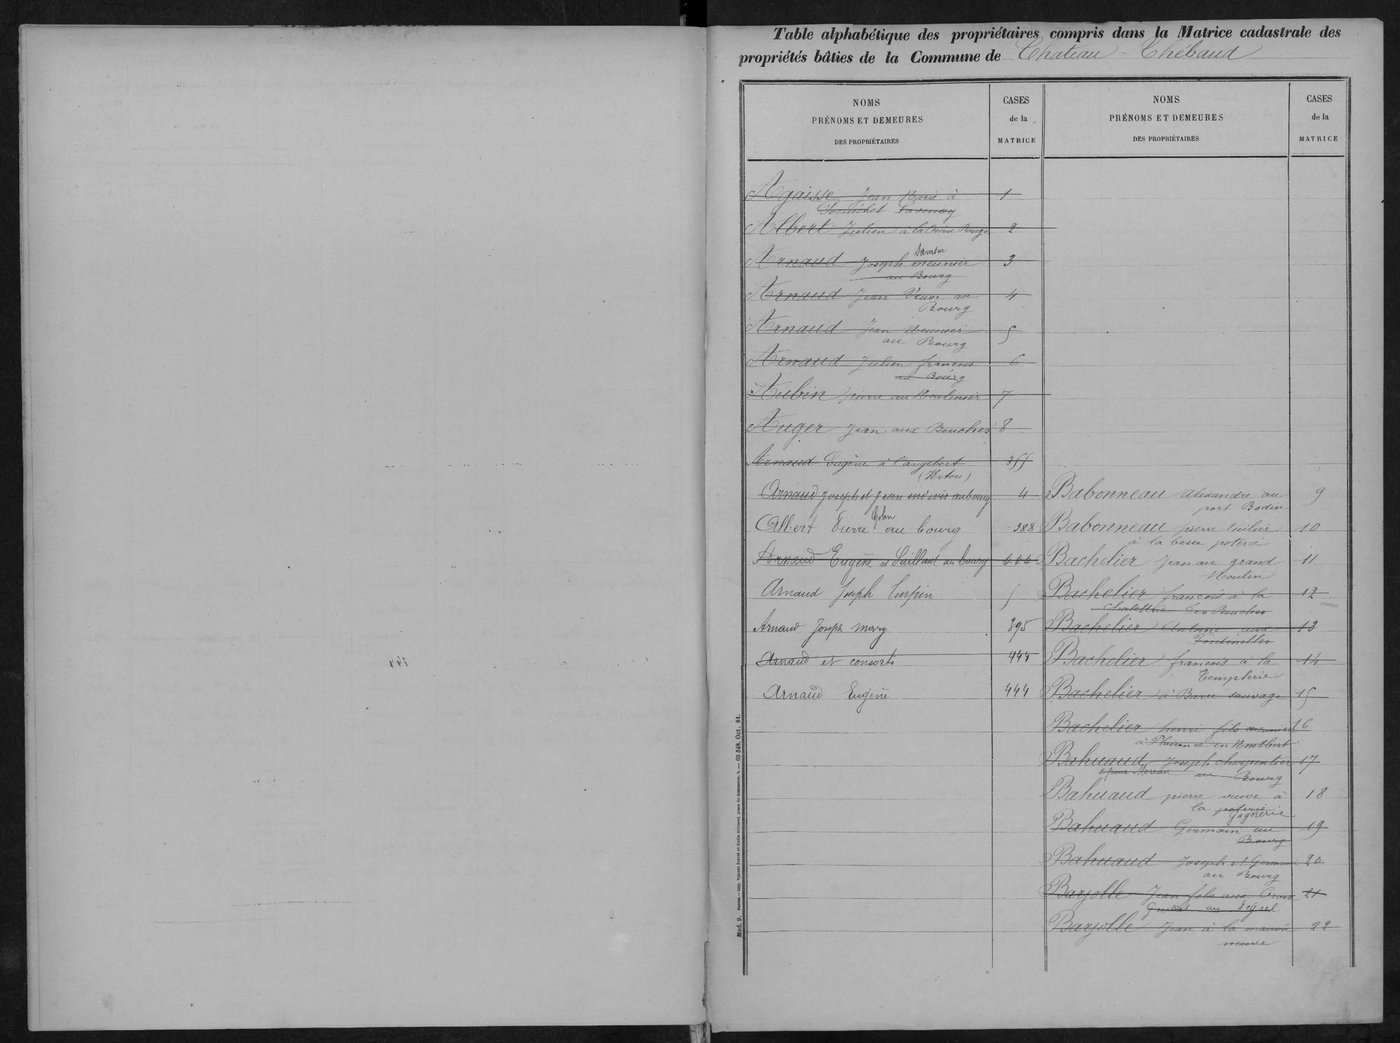 Table alphabétique des propriétaires compris dans la Matrice cadastrale des
propriétés bâties de la Commune de Château-Thébaud
NOMS
PRÉNOMS ET DEMEURES
DES PROPRIÉTAIRES
CASES
de la
MATRICE
Agaisse Jean Marie à 1
Savenay
Albert Julien à la Croix Rouge 2
Arnaud Joseph meunier 3
au Bourg
Arnaud Jean Veuve au 4
Bourg
Arnaud Jean meunier 5
au Bourg
Arnaud Julien françois 6
au Bourg
Aubin pierre au 7
Auger Jean aux Bouches 8
Arnaud Eugène à l'angebert 355
(Vertou)
Arnaud Joseph et Jean indivis au bourg 4
Albert Pierre au bourg 388
Arnaud Eugène et Guillart au bourg 400
Arnaud Joseph Turpin 5
Arnaud Joseph Mary 395
Arnaud et consorts 444
Arnaud Eugène 444
NOMS
PRÉNOMS ET DEMEURES
DES PROPRIÉTAIRES
CASES
de la
MATRICE
Babonneau alexandre au 9
port Bodin
Babonneau pierre tuilier 10
à la basse poterie
Bachelier Jean au grand 11
Moulin
Bachelier françois à la 12
Bachelier Antoine aux 13
Fontenelles
Bachelier françois à la 14
Templerie
Bachelier à Barre sauvage 15
Bachelier pierre fils meunier 16
à Plaisance en Montbert
Bahuaud Joseph charpentier 17
époux Moreau au Bourg
Bahuaud pierre veuve à 18
la poterie
Gagnerie
Bahuaud Germain au 19
Bourg
Bahuaud Joseph et Germain 20
au Bourg
Barjolle Jean fils aux 21
Barjolle Jean à la maison 22
neuve
Mod. 9.
144